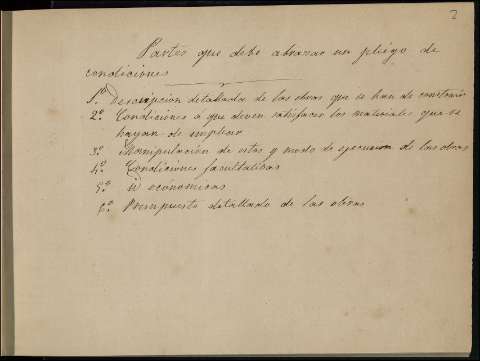 2
Partes que debe abrazar un pliego de
condiciones
1ª. Descripcion detallada de las obras que se han de construir
2ª. Condiciones á que deven satisfacer los materiales que se
hayan de emplear
3ª. Manipulación de estos y modo de ejecucion de las obras
4ª. Condiciones facultativas
5ª. economicas
6ª. Presupuesto detallado de las obras